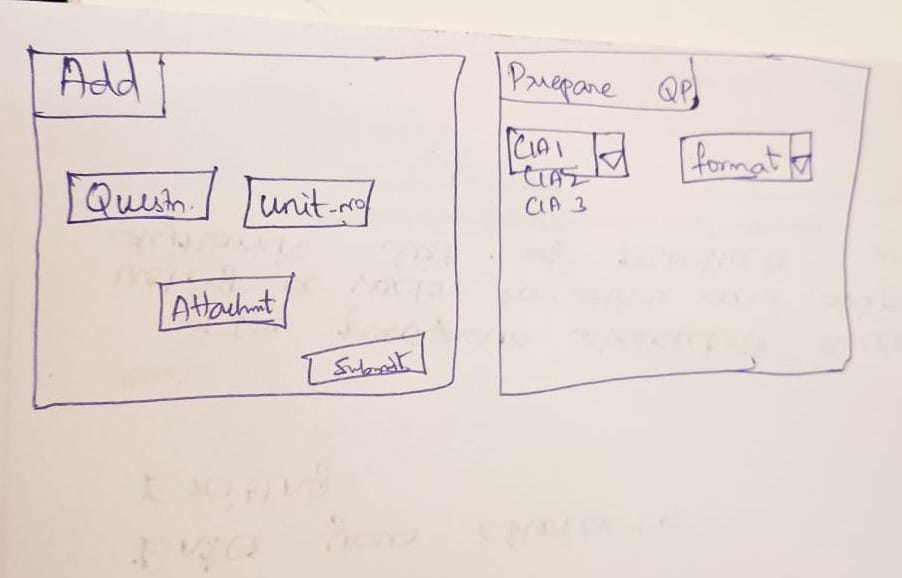 Add
Questn.
unit-no
Attachmt
Submit
Prepare QP
CIA1
CIA2
CIA 3
format